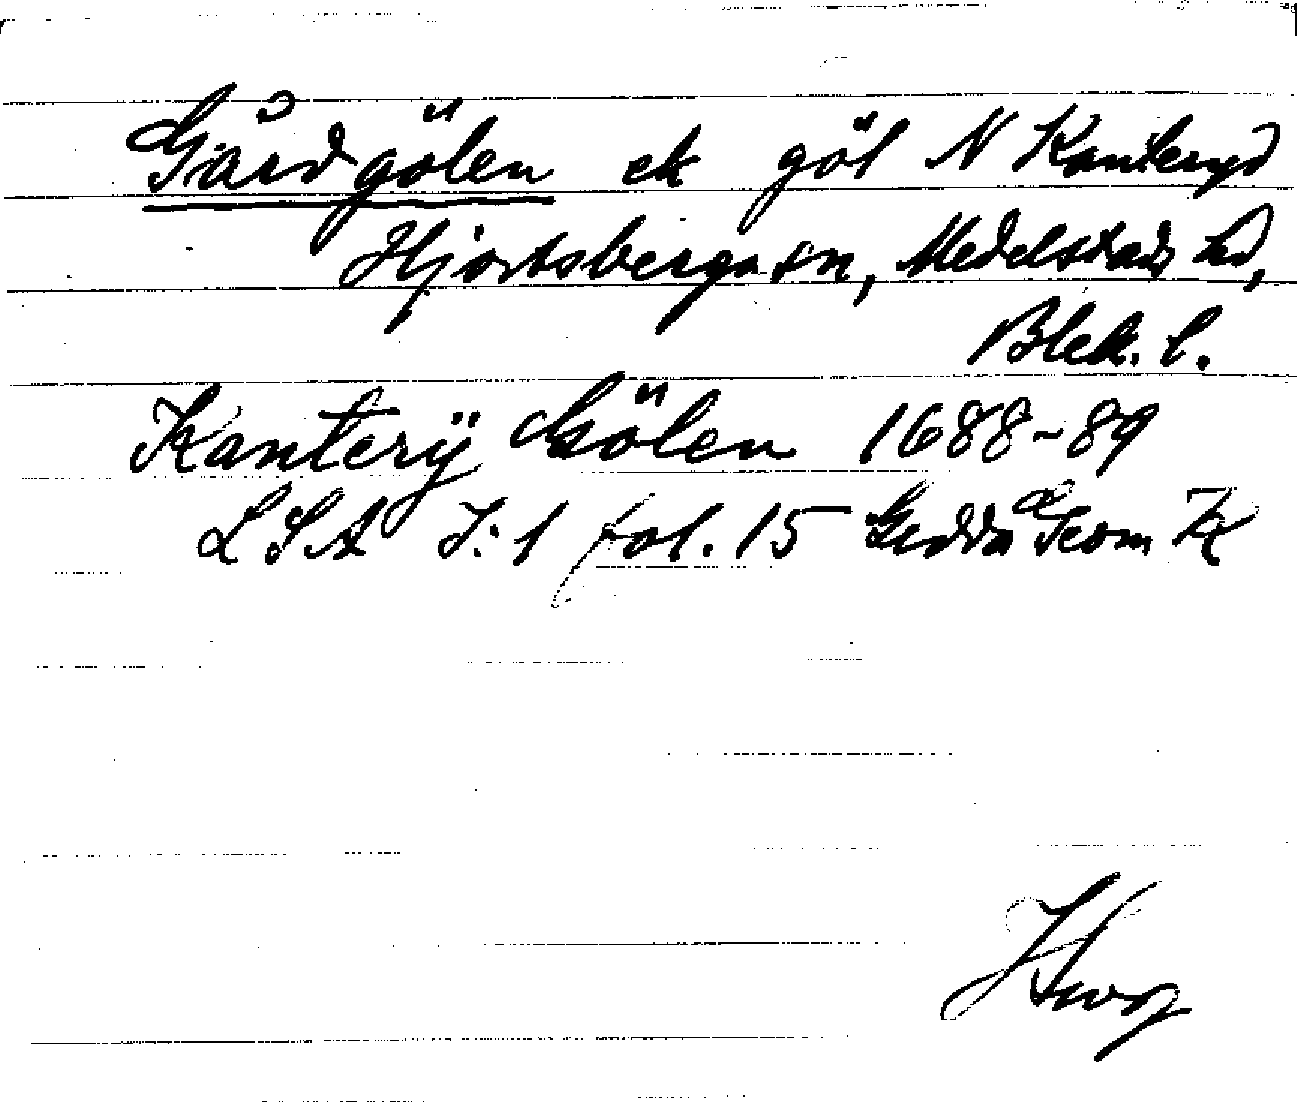 Gårdgölen ek göl N Kanteryd
Hjortsberga sn, Medelstads hd,
Blek. l.
Kanterÿ Gölen 1688-89
LSA I:1 fol. 15 Gedda